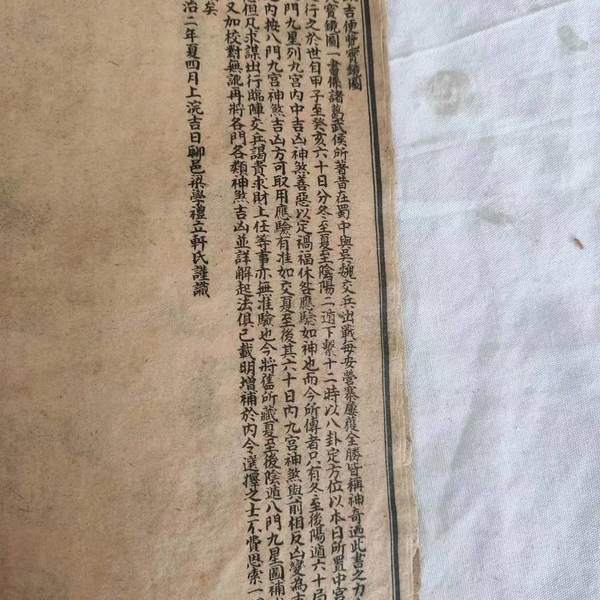 吉便覽寶鏡圖
寶鏡圖一書係諸葛武侯所著昔在蜀中與吳魏交兵出戰每安營寨屢獲全勝皆稱神奇迺此書之力
行之於世自甲子至癸亥六十日分冬至夏至陰陽二遁下繫十二時以八卦定方位以本日所置中宮
門九星列九宮內中吉凶神煞善惡以定禍福休咎應驗如神也而今所傳者只有冬至後陽遁六十局
內按八門九宮神煞吉凶方可取用應驗有准如交夏至後其六十日內九宮神煞與前相反凶變為吉
但凡求謀出行臨陣交兵謁貴求財上任等事亦無准驗也今將舊所藏夏至後陰遁八門九星圖補
又加校對無訛再將各門各類神煞吉凶並詳解起法俱已載明增補於內令選擇之士不費思索一
矣
治二年夏四月上浣吉日聊邑梁學禮立軒氏謹識